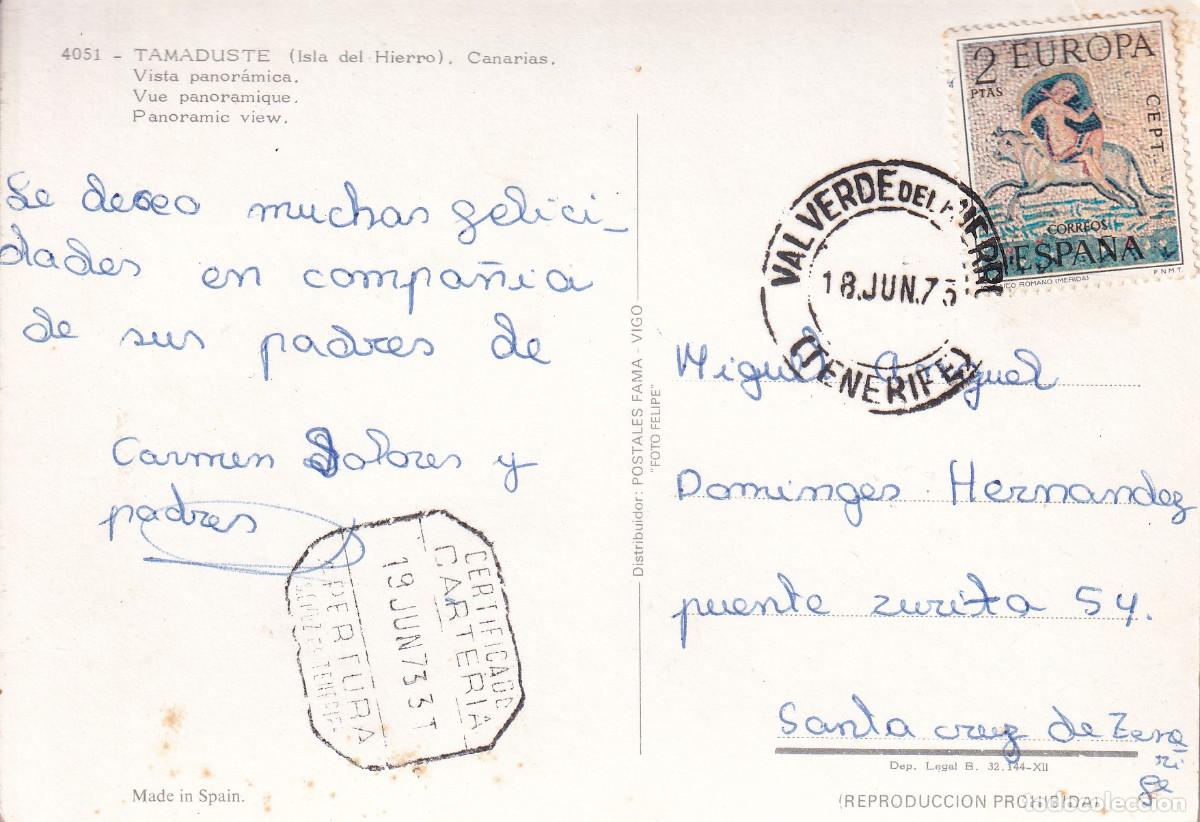 4051 - TAMADUSTE (Isla del Hierro). Canarias.
Vista panorámica.
Vue panoramique.
Panoramic view.
Le deseo muchas felici_
dades en compañia
de sus padres de
Carmen Dolores y
padres
2 EUROPA
PTAS
CEPT
CORREOS
ESPAÑA
ROMANO (MERIDA)
F.N.M.T.
VALVERDE DEL HIERRO
18.JUN.73
(TENERIFE)
Miguel Angel
Dominges Hernandez
puente zurita 54.
Santa cruz de Tene
ri
fe
Distribuidor: POSTALES FAMA - VIGO
"FOTO FELIPE"
CERTIFICADO
CARTERIA
19 JUN 73 3T
APERTURA
Dep. Legal B. 32.144-XII
Made in Spain.
(REPRODUCCION PROHIBIDA)
todocoleccion